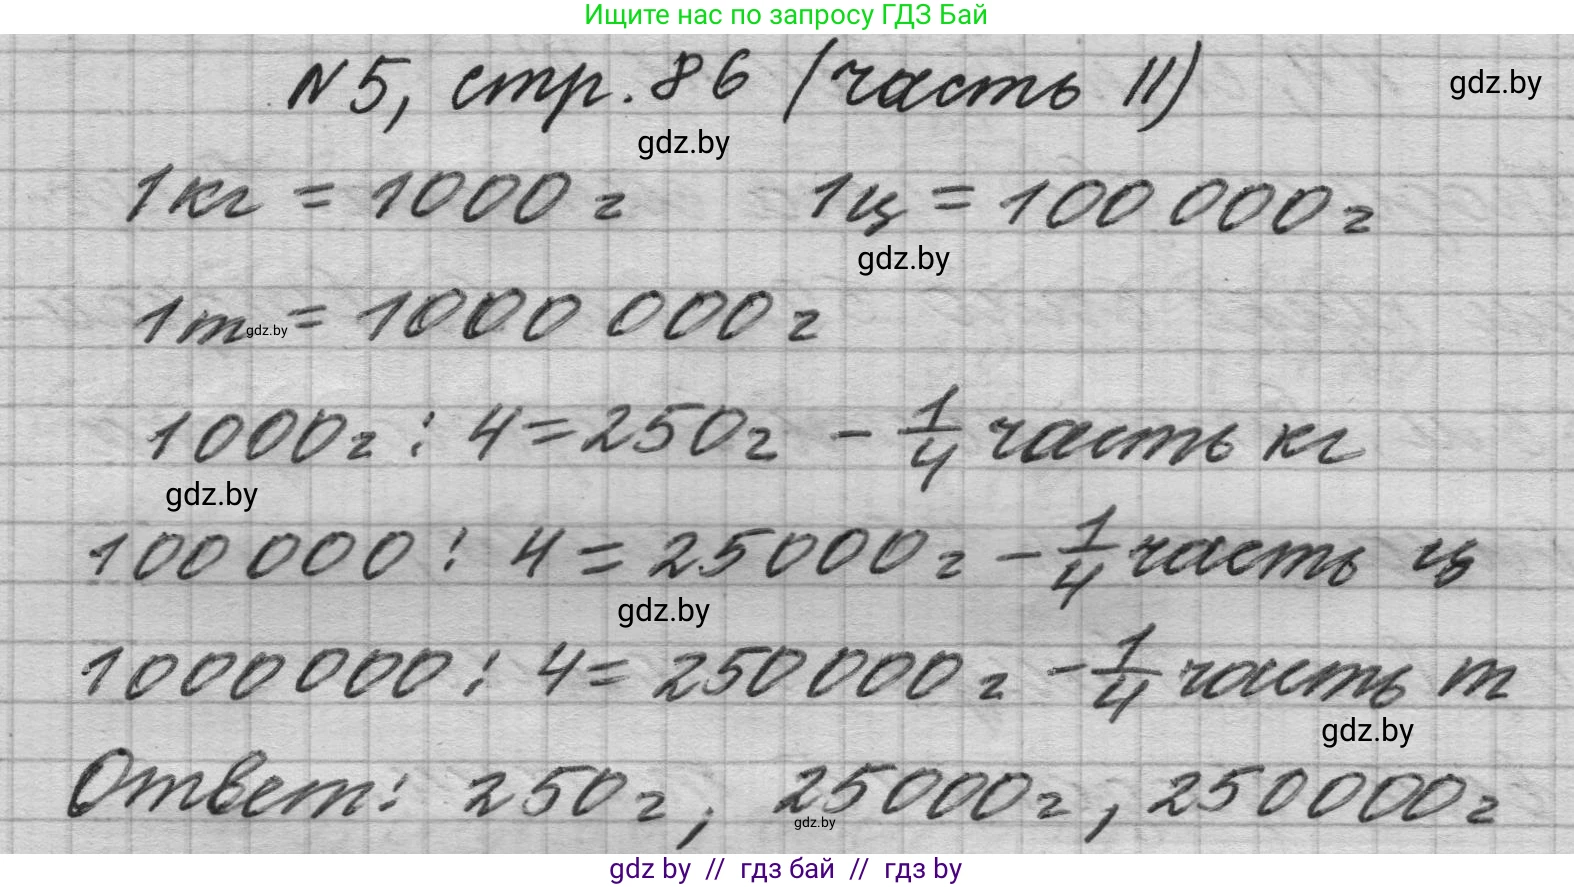 Ищите нас по запросу ГДЗ Бай
N5, стр. 86 (часть II)
gdz.by
gdz.by
1кг = 1000 г 1ц = 100 000 г
gdz.by
1т = 1000 000 г
gdz.by
1000г : 4 = 250г - 1/4 часть кг
gdz.by
100 000 : 4 = 25000 г - 1/4 часть ц
gdz.by
1000000 : 4 = 250000 г - 1/4 часть т
gdz.by
Ответ: 250 г, 25000г, 250000г
gdz.by
gdz by // гдз бай // гдз by